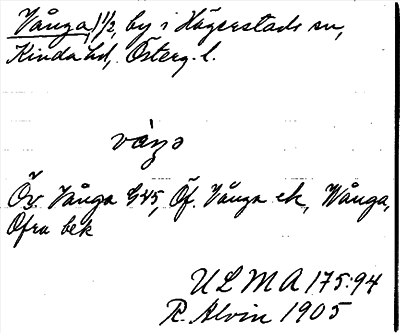 Vånga, 1 1/2, by i Hägerstads sn,
Kinda hd, Österg. l.
vàŋə
Öv. Vånga G45, Öf. Vånga ek, Wånga,
Ofra bek
ULMA 175:94
R. Alvin 1905